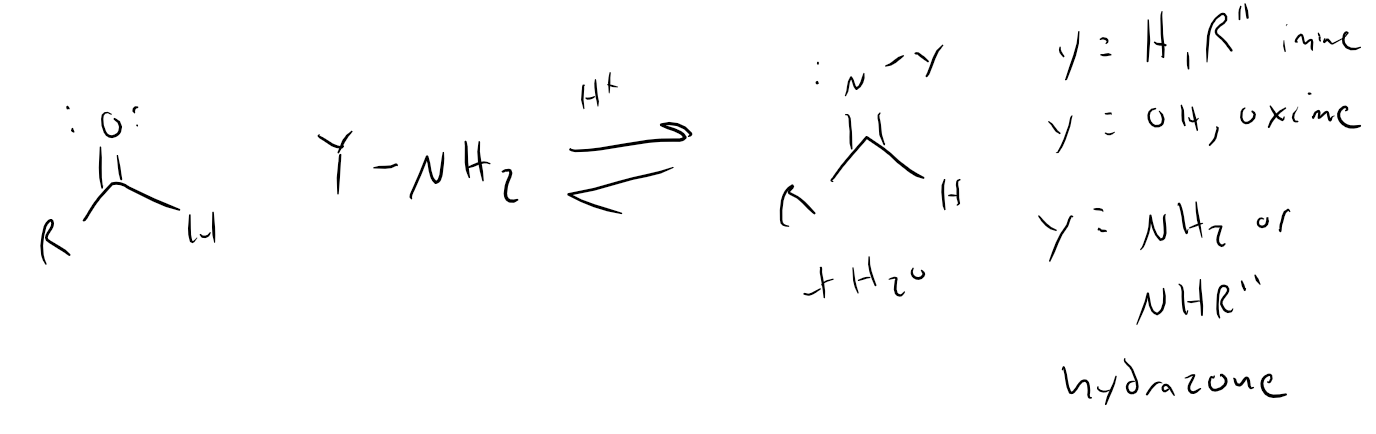 :O:
R H
Y - NH2
H+
: N - Y
R H
+ H2O
y = H, R" imine
y = OH, oxime
y = NH2 or
NHR"
hydrazone